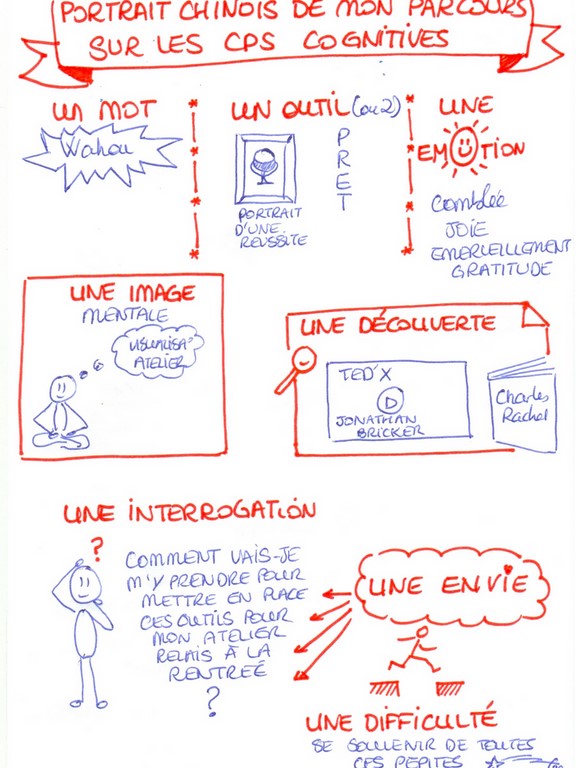 PORTRAIT CHINOIS DE MON PARCOURS
SUR LES CPS COGNITIVES
UN MOT
Wahou
UN OUTIL (ou 2)
PORTRAIT
D'UNE
REUSSITE
PRET
UNE
EMOTION
Comblée
JOIE
EMERVEILLEMENT
GRATITUDE
UNE IMAGE
MENTALE
VISUALISA°
ATELIER
UNE DÉCOUVERTE
TED'X
JONATHAN
BRICKER
Charles
Rachel
UNE INTERROGATION
?
COMMENT VAIS-JE
M'Y PRENDRE POUR
METTRE EN PLACE
CES OUTILS POUR
MON ATELIER
RELAIS À LA
RENTREÉ
?
UNE ENVIE
UNE DIFFICULTÉ
SE SOUVENIR DE TOUTES
CES PEPITES